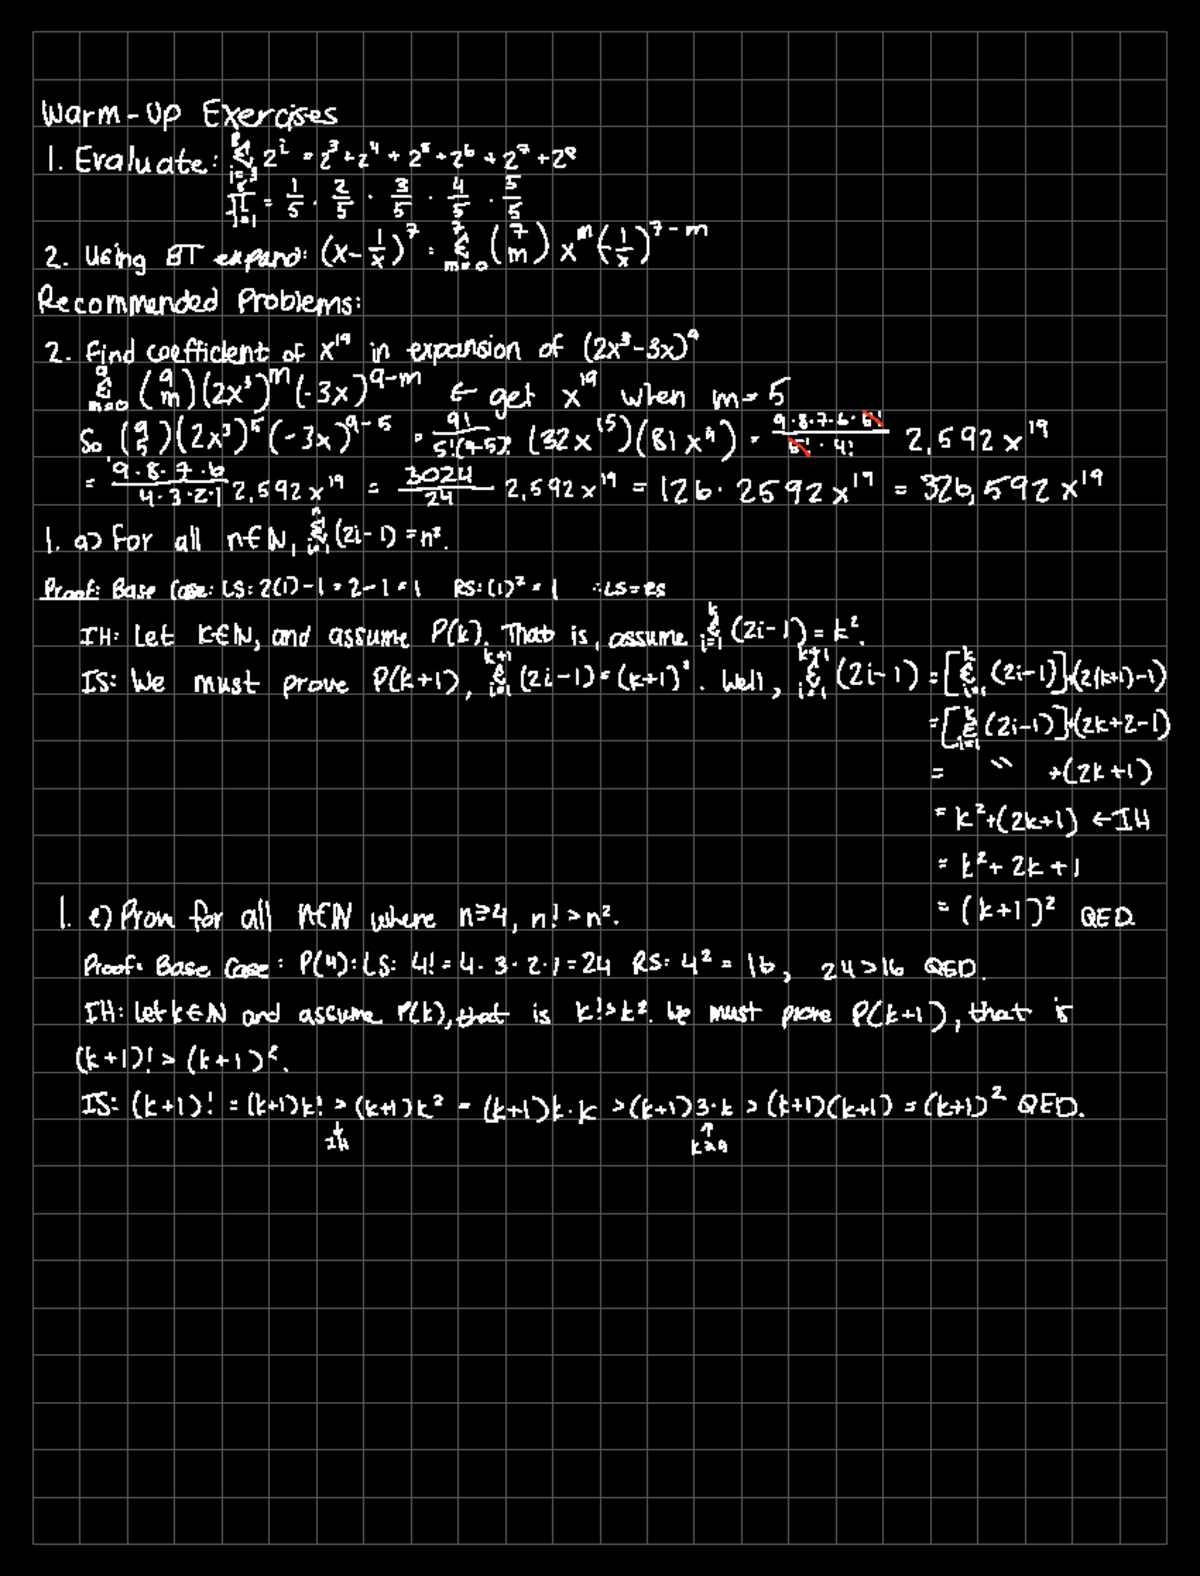 Warm-Up Exercises
1. Evaluate: 8 Σ i=3 2^i = 2^3 + 2^4 + 2^5 + 2^6 + 2^7 + 2^8
Π j=1 = 1/5 · 2/5 · 3/5 · 4/5 · 5/5
2. Using BT expand: (x - 1/x)^7 = 7 Σ m=0 (7 m) x^m (-1/x)^7-m
Recommended Problems:
2. Find coefficient of x^19 in expansion of (2x^3 - 3x)^9
9 Σ m=0 (9 m)(2x^3)^m (-3x)^9-m ← get x^19 when m=5
So (9 5)(2x^3)^5 (-3x)^9-5 = 9!/5!(9-5)! (32x^15)(81x^4) = 9·8·7·6·5!/5!·4! 2,592x^19
= 9·8·7·6/4·3·2·1 2,592x^19 = 3024/24 2,592x^19 = 126·2592x^19 = 326,592x^19
1. a) For all n∈N, n Σ i=1 (2i-1) = n².
Proof: Base Case: LS: 2(1)-1 = 2-1 = 1 RS: (1)² = 1 ∴ LS=RS
IH: Let k∈N, and assume P(k). That is, assume k Σ i=1 (2i-1) = k².
IS: We must prove P(k+1), k+1 Σ i=1 (2i-1) = (k+1)². Well, k+1 Σ i=1 (2i-1) = [k Σ i=1 (2i-1)]+(2(k+1)-1)
= [k Σ i=1 (2i-1)]+(2k+2-1)
= " +(2k+1)
= k²+(2k+1) ← IH
= k²+2k+1
= (k+1)² QED
1. e) Prove for all n∈N where n≥4, n! > n².
Proof: Base Case: P(4): LS: 4! = 4·3·2·1 = 24 RS: 4² = 16, 24>16 QED.
IH: Let k∈N and assume P(k), that is k!>k². We must prove P(k+1), that is
(k+1)! > (k+1)².
IS: (k+1)! = (k+1)k! > (k+1)k² = (k+1)k·k > (k+1)3·k > (k+1)(k+1) = (k+1)² QED.
↑ IH ↑ k≥4